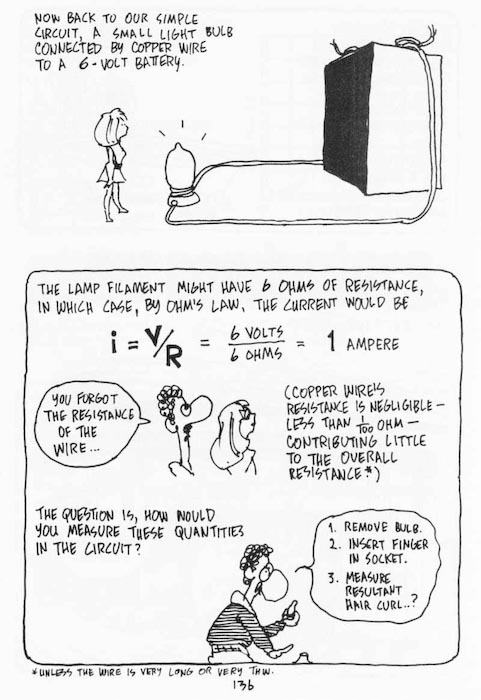 NOW BACK TO OUR SIMPLE
CIRCUIT, A SMALL LIGHT BULB
CONNECTED BY COPPER WIRE
TO A 6-VOLT BATTERY.
THE LAMP FILAMENT MIGHT HAVE 6 OHMS OF RESISTANCE,
IN WHICH CASE, BY OHM'S LAW, THE CURRENT WOULD BE
i = V/R = 6 VOLTS / 6 OHMS = 1 AMPERE
YOU FORGOT
THE RESISTANCE
OF THE
WIRE...
(COPPER WIRE'S
RESISTANCE IS NEGLIGIBLE —
LESS THAN 1/100 OHM —
CONTRIBUTING LITTLE
TO THE OVERALL
RESISTANCE.*)
THE QUESTION IS, HOW WOULD
YOU MEASURE THESE QUANTITIES
IN THE CIRCUIT?
1. REMOVE BULB.
2. INSERT FINGER
IN SOCKET.
3. MEASURE
RESULTANT
HAIR CURL..?
*UNLESS THE WIRE IS VERY LONG OR VERY THIN.
136